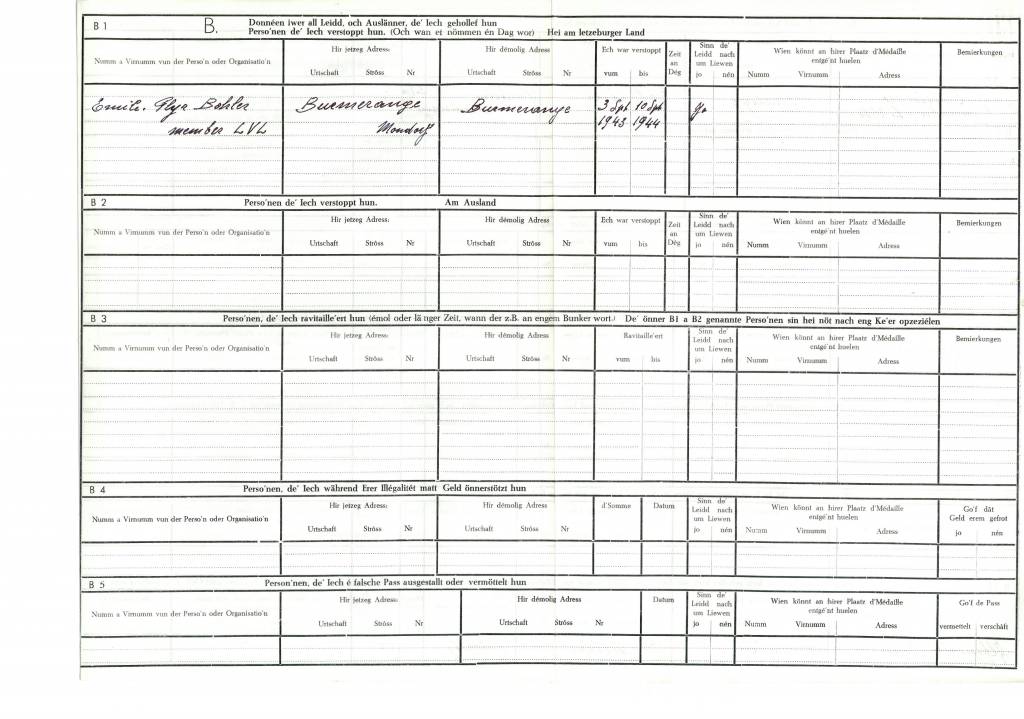 B 1
B.
Donnéen iwer all Leidd, och Auslänner, de' Iech gehollef hun
Perso'nen de' Iech verstoppt hun. (Och wan et nömmen én Dag wor) Hei am letzeburger Land
Numm a Virnumm vun der Perso'n oder Organisatio'n
Hir jetzeg Adress:
Urtschaft Ströss Nr
Hir démolig Adress:
Urtschaft Ströss Nr
Ech war verstoppt
vum bis
Zeit
an
Dég
Sinn de'
Leidd nach
um Liewen
jo nén
Wien könnt an hirer Plaatz d'Médaille
entgé'nt huelen
Numm Virnumm Adress
Bemierkungen
Emile Bohler Buemerange Buemerange 3 Spt 10 Spt Yo
member LVL Mondorf 1943 1944
B 2
Perso'nen de' Iech verstoppt hun. Am Ausland
Numm a Virnumm vun der Perso'n oder Organisatio'n
Hir jetzeg Adress:
Urtschaft Ströss Nr
Hir démolig Adress
Urtschaft Ströss Nr
Ech war verstoppt
vum bis
Zeit
an
Dég
Sinn de'
Leidd nach
um Liewen
jo nén
Wien könnt an hirer Plaatz d'Médaille
entgé'nt huelen
Numm Virnumm Adress
Bemierkungen
B 3
Perso'nen, de' Iech ravitaille'ert hun (émol oder lä nger Zeit, wann der z.B. an engem Bunker wort.) De' önner B1 a B2 genannte Perso'nen sin hei nöt nach eng Ke'er opzeziélen
Numm a Virnumm vun der Perso'n oder Organisatio'n
Hir jetzeg Adress:
Urtschaft Ströss Nr
Hir démolig Adress
Urtschaft Ströss Nr
Ravitaille'ert
vum bis
Sinn de'
Leidd nach
um Liewen
jo nén
Wien könnt an hirer Plaatz d'Médaille
entgé'nt huelen
Numm Virnumm Adress
Bemierkungen
B 4
Perso'nen, de' Iech während Erer Illégalitét matt Geld önnerstötzt hun
Numm a Virnumm vun der Perso'n oder Organisatio'n
Hir jetzeg Adress:
Urtschaft Ströss Nr
Hir démolig Adress
Urtschaft Ströss Nr
d'Somme
Datum
Sinn de'
Leidd nach
um Liewen
jo nén
Wien könnt an hirer Plaatz d'Médaille
entgé'nt huelen
Numm Virnumm Adress
Go'f dät
Geld erem gefrot
jo nén
B 5
Person'nen, de' Iech é falsche Pass ausgestallt oder vermöttelt hun
Numm a Virnumm vun der Perso'n oder Organisatio'n
Hir jetzeg Adress:
Urtschaft Ströss Nr
Hir démolig Adress
Urtschaft Ströss Nr
Datum
Sinn de'
Leidd nach
um Liewen
jo nén
Wien könnt an hirer Plaatz d'Médaille
entgé'nt huelen
Numm Virnumm Adress
Go'f de Pass
vermettelt verschäft